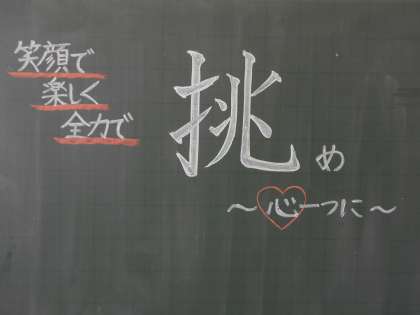 笑顔で
楽しく
全力で
挑め
〜心一つに〜